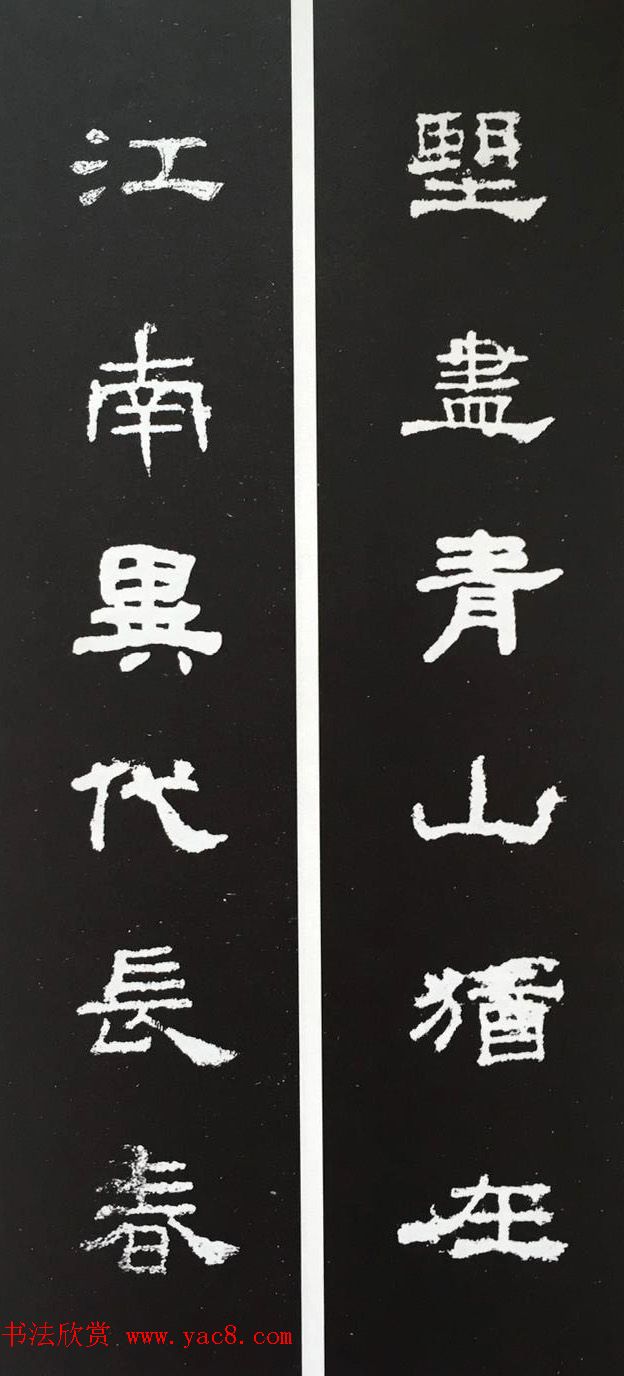 朢盡青山猶在
江南異代長春
书法欣赏 www.yac8.com